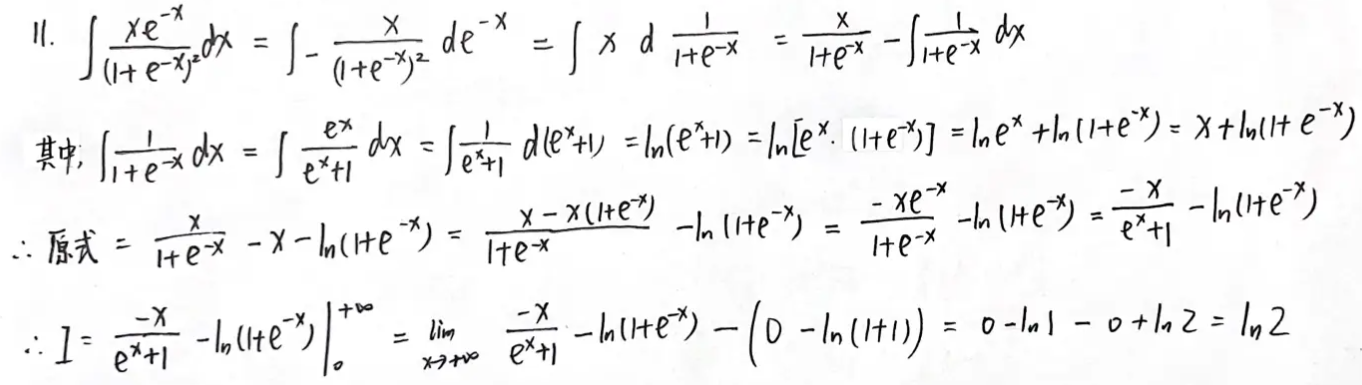 11. ∫ xe^{-x}/(1+e^{-x})² dx = ∫ - x/(1+e^{-x})² de^{-x} = ∫ x d 1/(1+e^{-x}) = x/(1+e^{-x}) - ∫ 1/(1+e^{-x}) dx
其中, ∫ 1/(1+e^{-x}) dx = ∫ e^x/(e^x+1) dx = ∫ 1/(e^x+1) d(e^x+1) = ln(e^x+1) = ln[e^x · (1+e^{-x})] = ln e^x + ln(1+e^{-x}) = x + ln(1+e^{-x})
∴ 原式 = x/(1+e^{-x}) - x - ln(1+e^{-x}) = (x - x(1+e^{-x}))/(1+e^{-x}) - ln(1+e^{-x}) = -xe^{-x}/(1+e^{-x}) - ln(1+e^{-x}) = -x/(e^x+1) - ln(1+e^{-x})
∴ I = -x/(e^x+1) - ln(1+e^{-x}) |_0^{+∞} = lim_{x→+∞} -x/(e^x+1) - ln(1+e^{-x}) - (0 - ln(1+1)) = 0 - ln1 - 0 + ln2 = ln2